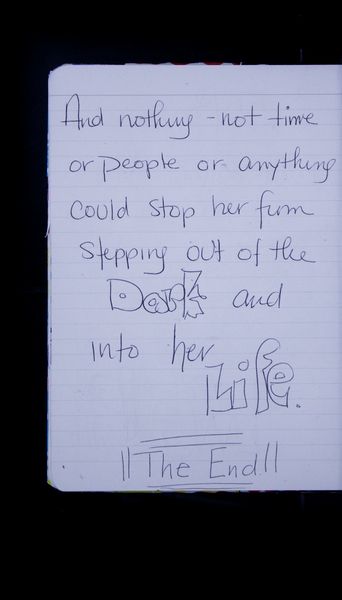 And nothing - not time
or people or anything
could stop her from
stepping out of the
Dark and
into her
Life.
The End